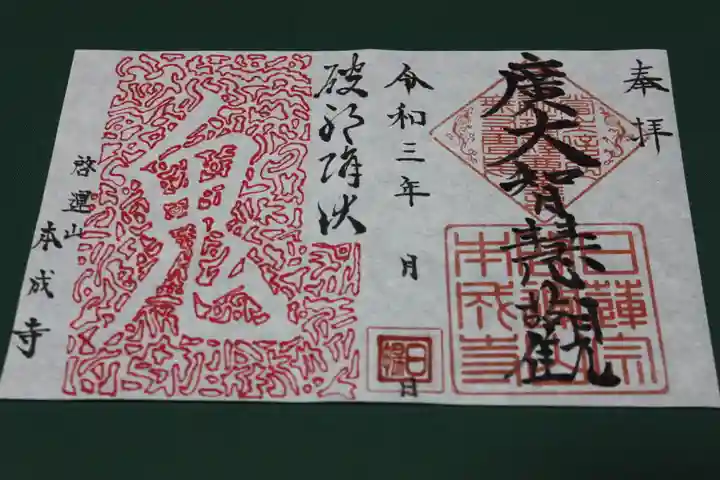 奉拝
廣大智慧觀
日蓮宗
本成寺
令和三年 月 日
破邪降伏
鬼
啓運山
本成寺